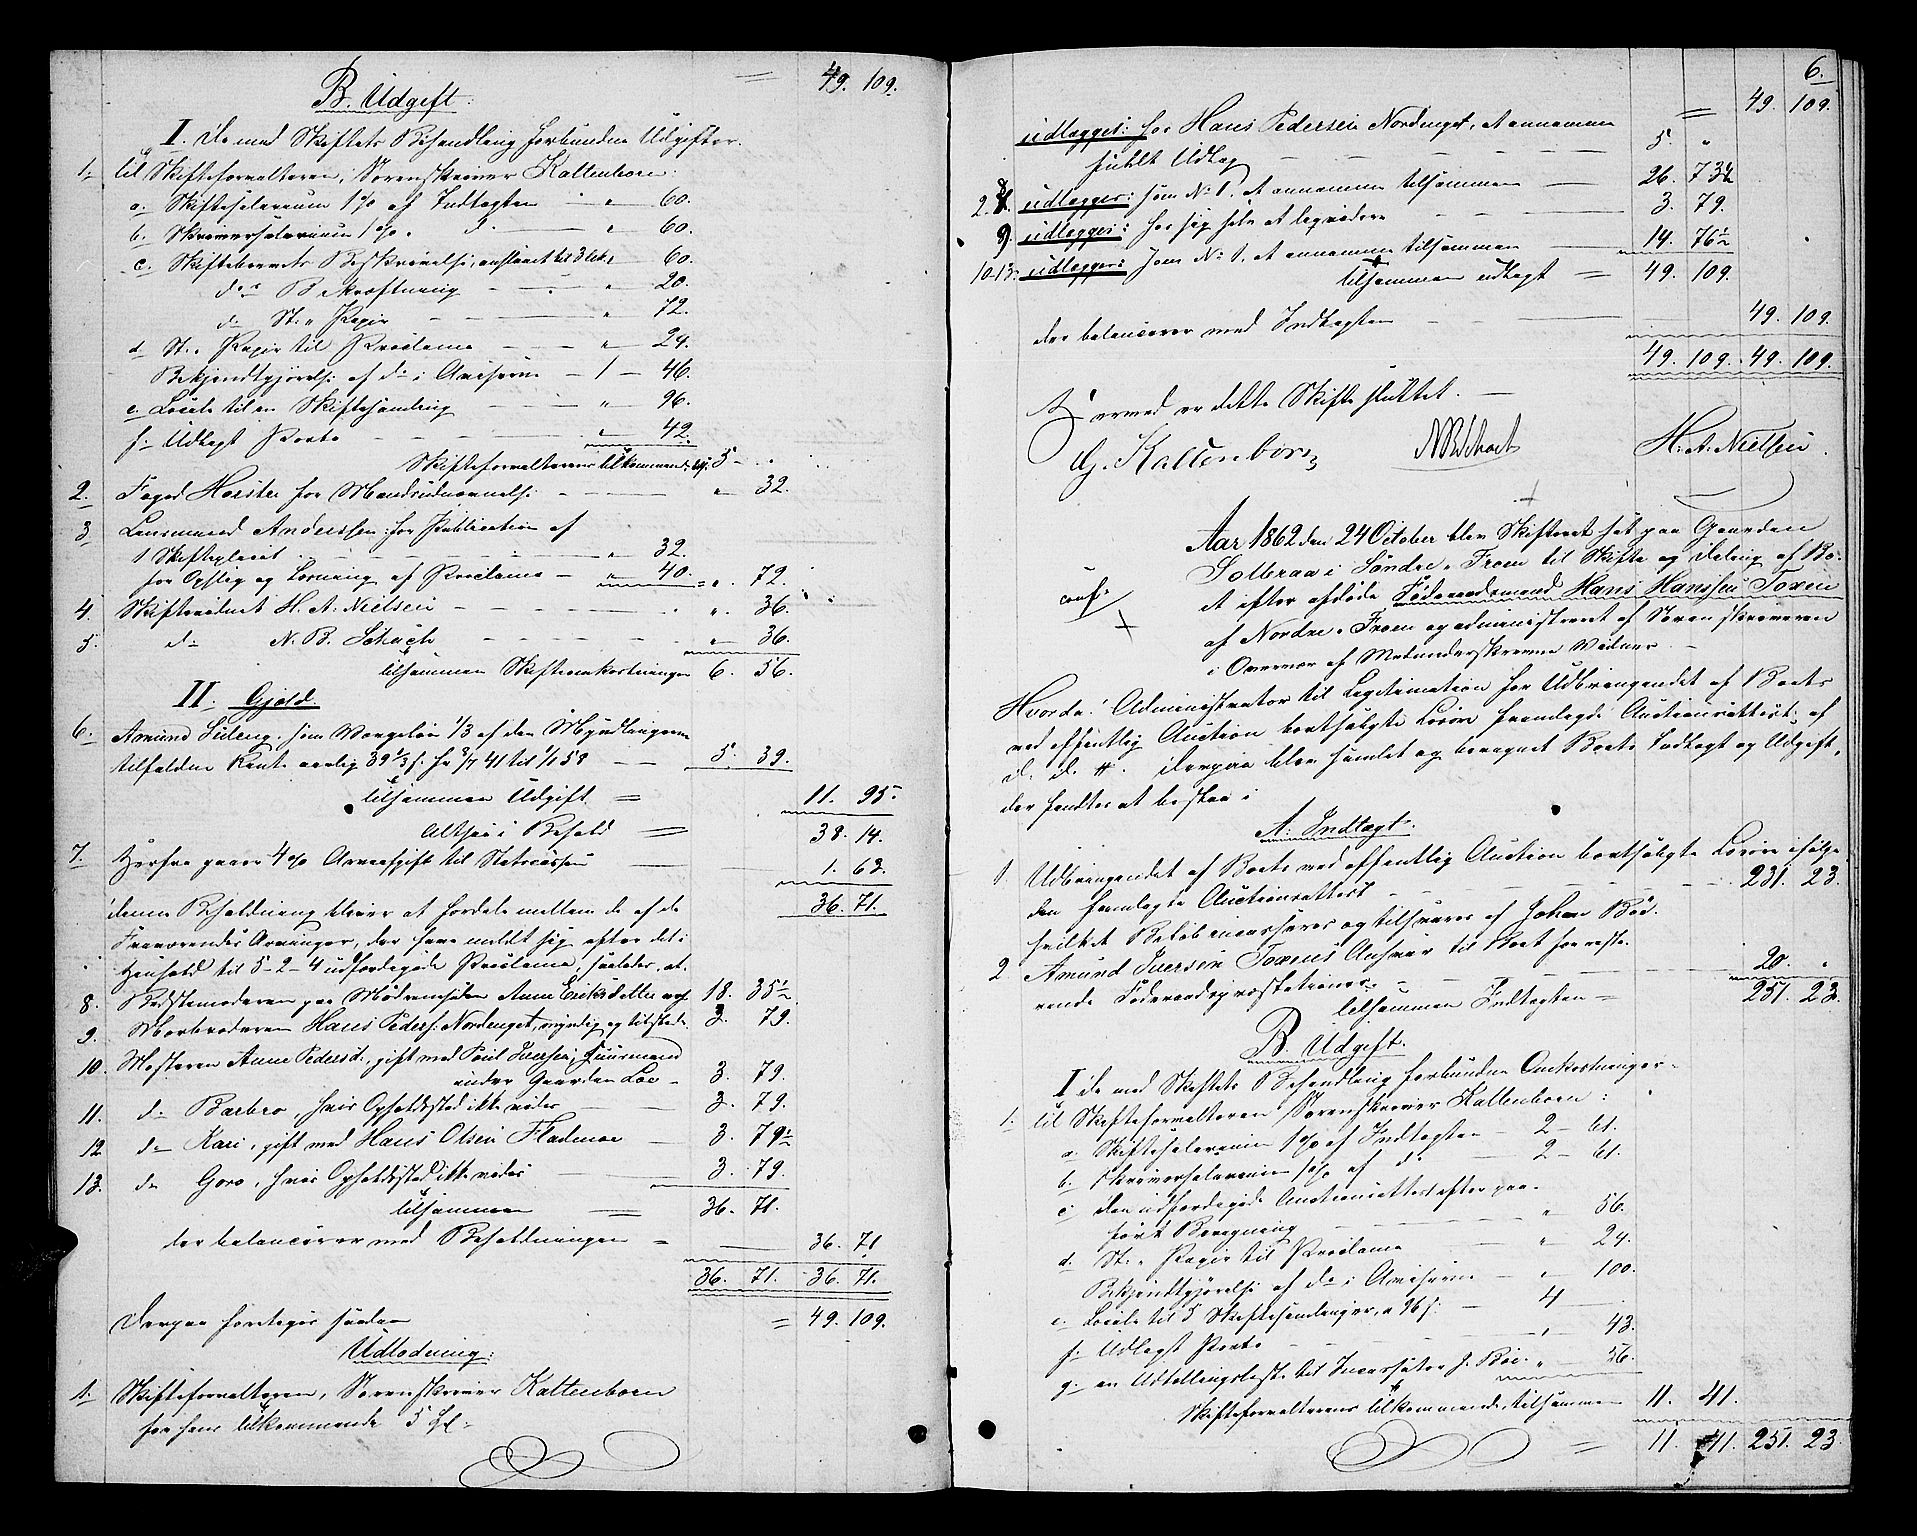 = 49. 109.
B. Udgift:
I. De med Skiftets Behandling forbundne Udgifter.
1. til Skifteforvalteren, Sorenskriver Kaltenborn:
a. Skiftesalarium 1 % af Indtægten — " 60.
b. Skriversalarium 1 % " d° — " 60.
c. Skiftebrevets Beskrivelse, anslaaet til 3 Ark " 60.
d° s Bekræftning — " 20.
d° St: Papir — " 72.
d. St: Papir til Proclama — " 24.
Bekjendtgjørelse af d° i Aviserne — 1 — 46.
e. Locale til en Skiftesamling — " 96.
f. Udlagt Porto — " 42.
Skifteforvalterens tilkommende 5 — "
2. Foged Horster for Mændsudnævnelse — " 32.
3 Lensmand Anderssen: for Publication af
1 Skifteplacat — " 32.
for Opslag og Læsning af Proclama — " 40. = " 72.
4. Skiftevidnet H. A. Nielsen — " 36.
5. d° N. B. Schach — " 36.
tilsammen Skifteomkostninger 6. 56.
II. Gjæld.
6. Amund Sileng, som Værgeløn 1/3 af den Myndlingerne
tilfaldne Rente aarlig 39 1/3 s. fra 8/7 41 til 1/1 59 — 5. 39.
tilsammen Udgift = 11. 95.
Altsaa i Behold = 38. 14.
7. Herfra gaaer 4 % Arveafgift til Statscassen — 1. 63.
36. 71.
denne Beholdning bliver at fordele mellem de af de
Fraværendes Arvinger, der have meldt sig efter det i
Henhold til 5-2-4 udfærdigede Proclama, saaledes, at
8. Bedstemoderen paa Mødrenesiden Anne Eriksdatter 18. 35 1/2
9. Morbroderen Hans Peders: Nordenget, myndig og tilstede 3. 79.
10. Mosteren Anne Pedersd., gift med Poul Iversen, Huusmand
under Gaarden Loe — 3. 79.
11. d° Barbro, hvis Opholdssted ikke vides — 3. 79.
12 d° Kari, gift med Hans Olsen Fladmoe — 3. 79 1/2
13. d° Goro, hvis Opholdssted ikke vides — 3. 79.
tilsammen = 36. 71.
der balancerer med Beholdningen = 36. 71
36. 71. 36. 71.
Derpaa foretoges saadan = 49. 109.
Udlodning:
1. Skifteforvalteren, Sorenskriver Kaltenborn
for hans tilkommende 5 Spd.
6.
= 49. 109.
udlægges: hos Hans Pedersen Nordenget, at annamme
fuldt Udlæg — 5. "
2-8. udlægges: som No. 1. at annamme tilsammen — 26. 73 1/2
9. udlægges: hos sig selv at liqvidere — 3. 79.
10-13. udlægges: som No. 1. at annamme tilsammen — 14. 76 1/2
tilsammen udlagt = 49. 109.
der balancerer med Indtægten — 49. 109.
49. 109. 49. 109.
Hermed er dette Skifte sluttet. —
G. Kaltenborn N B Schach H. A. Nielsen.
Aar 1862 den 24 October blev Skifteret sat paa Gaarden
Solbraa i Søndre-Froen til Skifte og Deling af Bo-
et efter afdøde Føderaadsmand Hans Hanssen Toxen
af Nordre-Froen og administreret af Sorenskriveren
i Overvær af Medunderskrevne Vidner. —
Hvorda! Administrator til Legitimation for Udbringendet af Boets
ved offentlig Auction bortsolgte Løsøre fremlagde Auctionsattest, af
D. D. #. Derpaa blev samlet og beregnet Boets Indtægt og Udgift,
der fandtes at bestaa i
A. Indtægt:
1 Udbringendet af Boets ved offentlig Auction bortsolgte Løsøre ifølge
den fremlagte Auctionsattest — 231. 23.
hvilket Beløb incasseres og tilsvares af Johan Bøe.
2 Amund Iversen Toxens Ansvar til Boet for reste-
rende Føderaadspræstationer — 20. "
tilsammen Indtægten = 251. 23.
B. Udgift.
I de med Skiftets Behandling forbundne Omkostninger
1. til Skifteforvalteren Sorenskriver Kaltenborn:
a. Skiftesalarium 1 % af Indtægten — 2 — 61.
b. Skriversalarium 1 % af d° — 2 — 61.
c. den udfærdigede Auctionsattest efter paa-
ført Beregning — " 56.
d. St: Papir til Proclama — " 24.
Bekjendtgjørelse af d° i Aviserne — " 100.
e. Locale til 5 Skiftesamlinger, a 96 s: — 4 —
f. Udlagt Porto — " 43.
g. en Udtællingsliste til Incassator J. Bøe. " 56.
Skifteforvalterens tilkommende, tilsammen 11. 41.
= 11. 41. 251. 23.